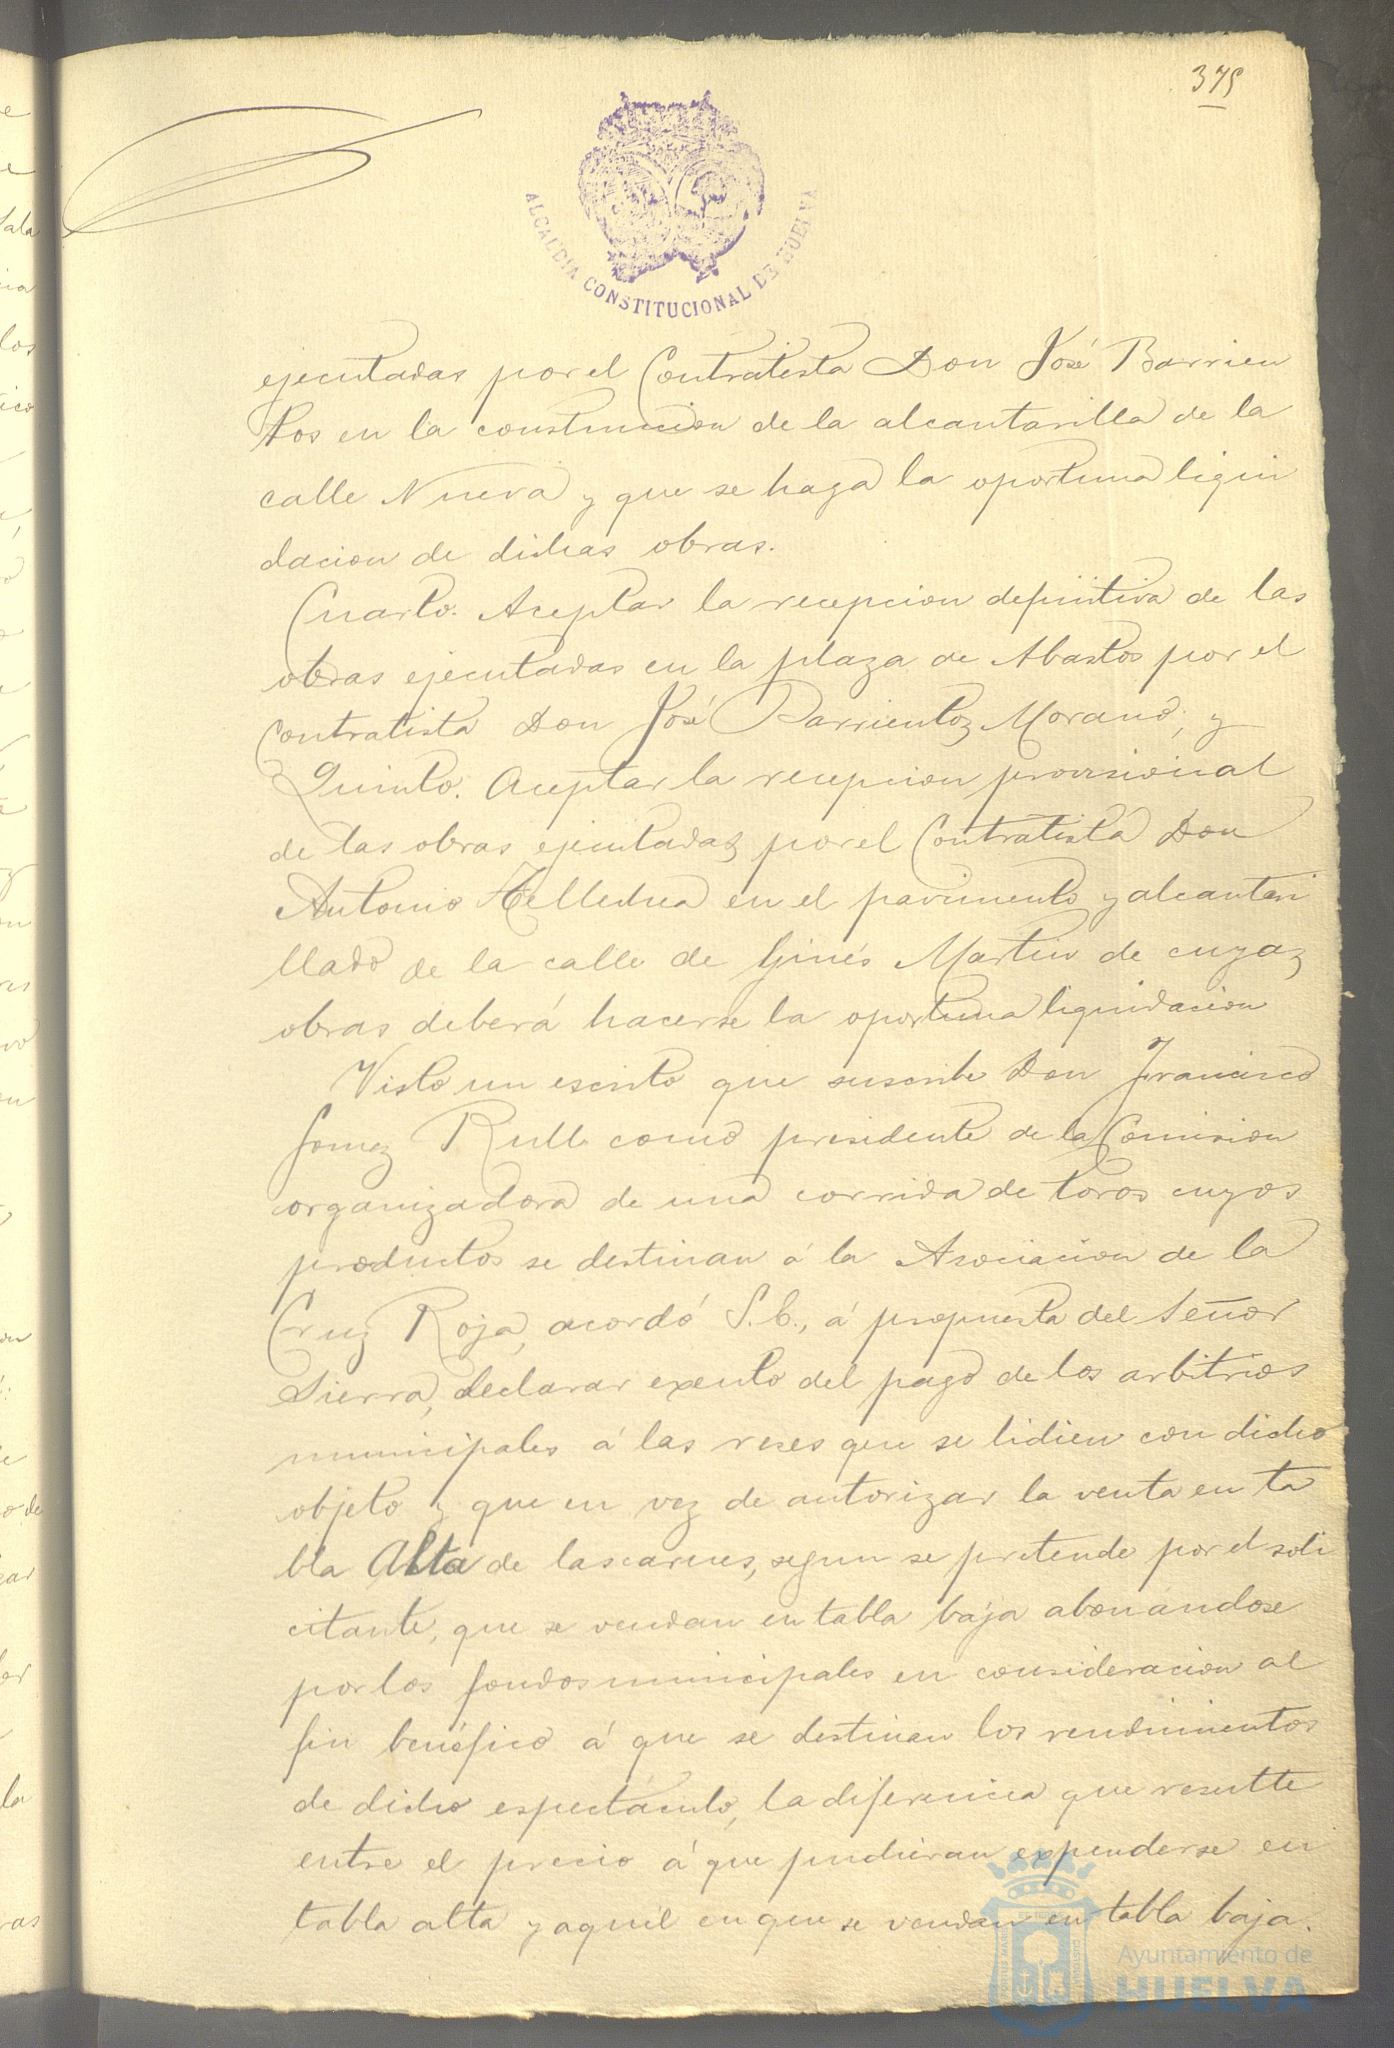 375
ALCALDIA CONSTITUCIONAL DE HUELVA
ejecutadas por el Contratista Don José Barrien
tos en la construccion de la alcantarilla de la
calle Nueva y que se haga la oportuna liqui
dacion de dichas obras.
Cuarto. Aceptar la recepcion definitiva de las
obras ejecutadas en la plaza de Abastos por el
Contratista Don José Barrientos Morano; y
Quinto. Aceptar la recepcion provisional
de las obras ejecutadas por el Contratista Don
Antonio Tellechea en el pavimento y alcantari
llado de la calle de Ginés Martin de cuyas
obras deberá hacerse la oportuna liquidacion
Visto un escrito que suscribe Don Francisco
Gomez Rull como presidente de la Comision
organizadora de una corrida de toros cuyos
productos se destinan á la Asociacion de la
Cruz Roja, acordó S.C., á propuesta del Señor
Sierra, declarar exento del pago de los arbitrios
municipales á las reses que se lidien con dicho
objeto y que en vez de autorizar la venta en ta
bla Alta de las carnes, segun se pretende por el soli
citante, que se vendan en tabla baja abonándose
por los fondos municipales en consideracion al
fin benéfico á que se destinan los rendimientos
de dicho espectáculo, la diferencia que resulte
entre el precio á que pudieran expenderse en
tabla alta y aquél en que se vendan en tabla baja.
Ayuntamiento de
HUELVA